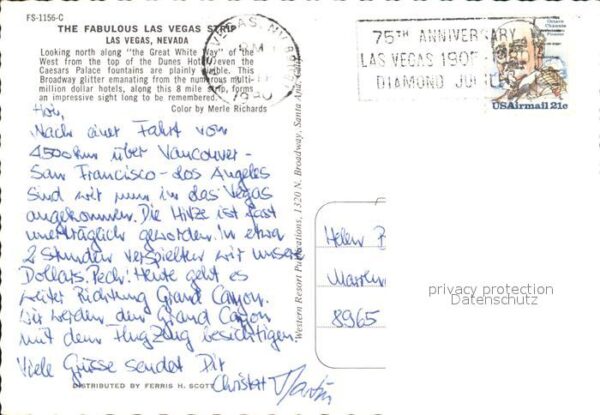 FS-1156-C
THE FABULOUS LAS VEGAS STRIP
LAS VEGAS, NEVADA
Looking north along "the Great White Way" of the
West from the top of the Dunes Hotel, even the
Caesars Palace fountains are plainly visible. This
Broadway glitter emanating from the numerous multi-
million dollar hotels, along this 8 mile strip, forms
an impressive sight long to be remembered.
Color by Merle Richards
75TH ANNIVERSARY
LAS VEGAS 1905-1980
DIAMOND JUBILEE
Octave
Chanute
USAirmail 21c
Nach einer Fahrt von
4500 km über Vancouver-
San Francisco - Los Angeles
sind wir nun in Las Vegas
angekommen. Die Hitze ist fast
unerträglich geworden. In etwa
2 Stunden verspielten wir unsere
Dollars. Pech! Heute geht es
weiter Richtung Grand Canyon.
Wir werden den Grand Canyon
mit dem Flugzeug besichtigen.
Viele Grüsse sendet Dir
Martin
DISTRIBUTED BY FERRIS H. SCOTT
Western Resort Publications, 1320 N. Broadway, Santa Ana, Calif.
8965
privacy protection
Datenschutz